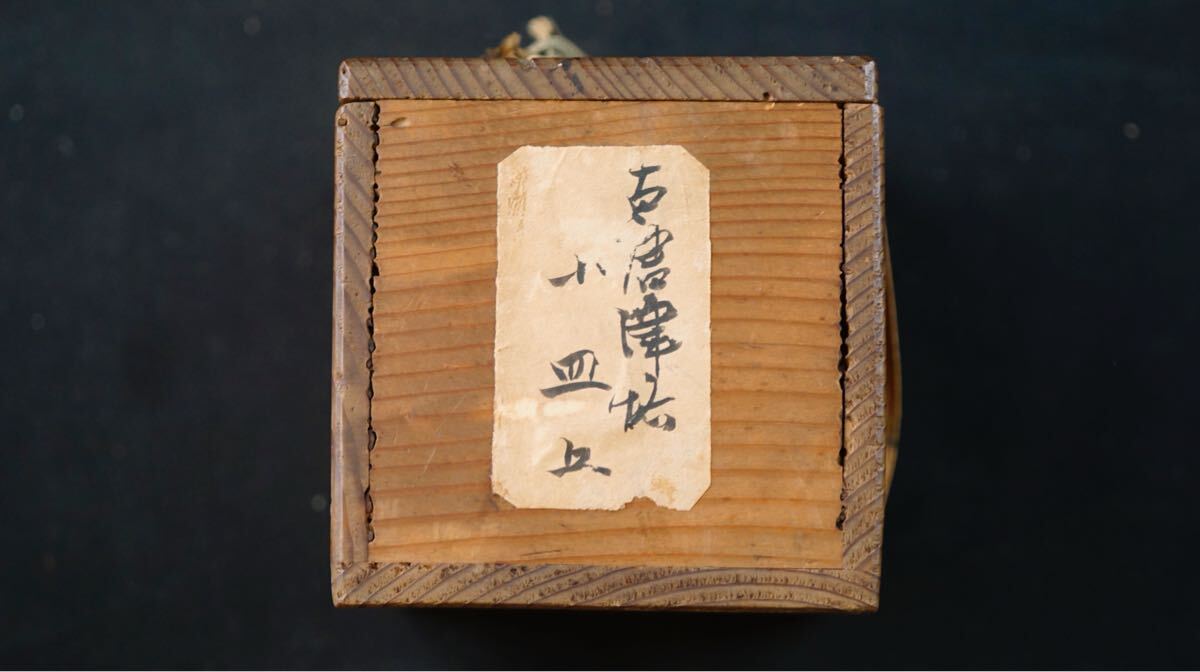 古唐津焼
小皿五